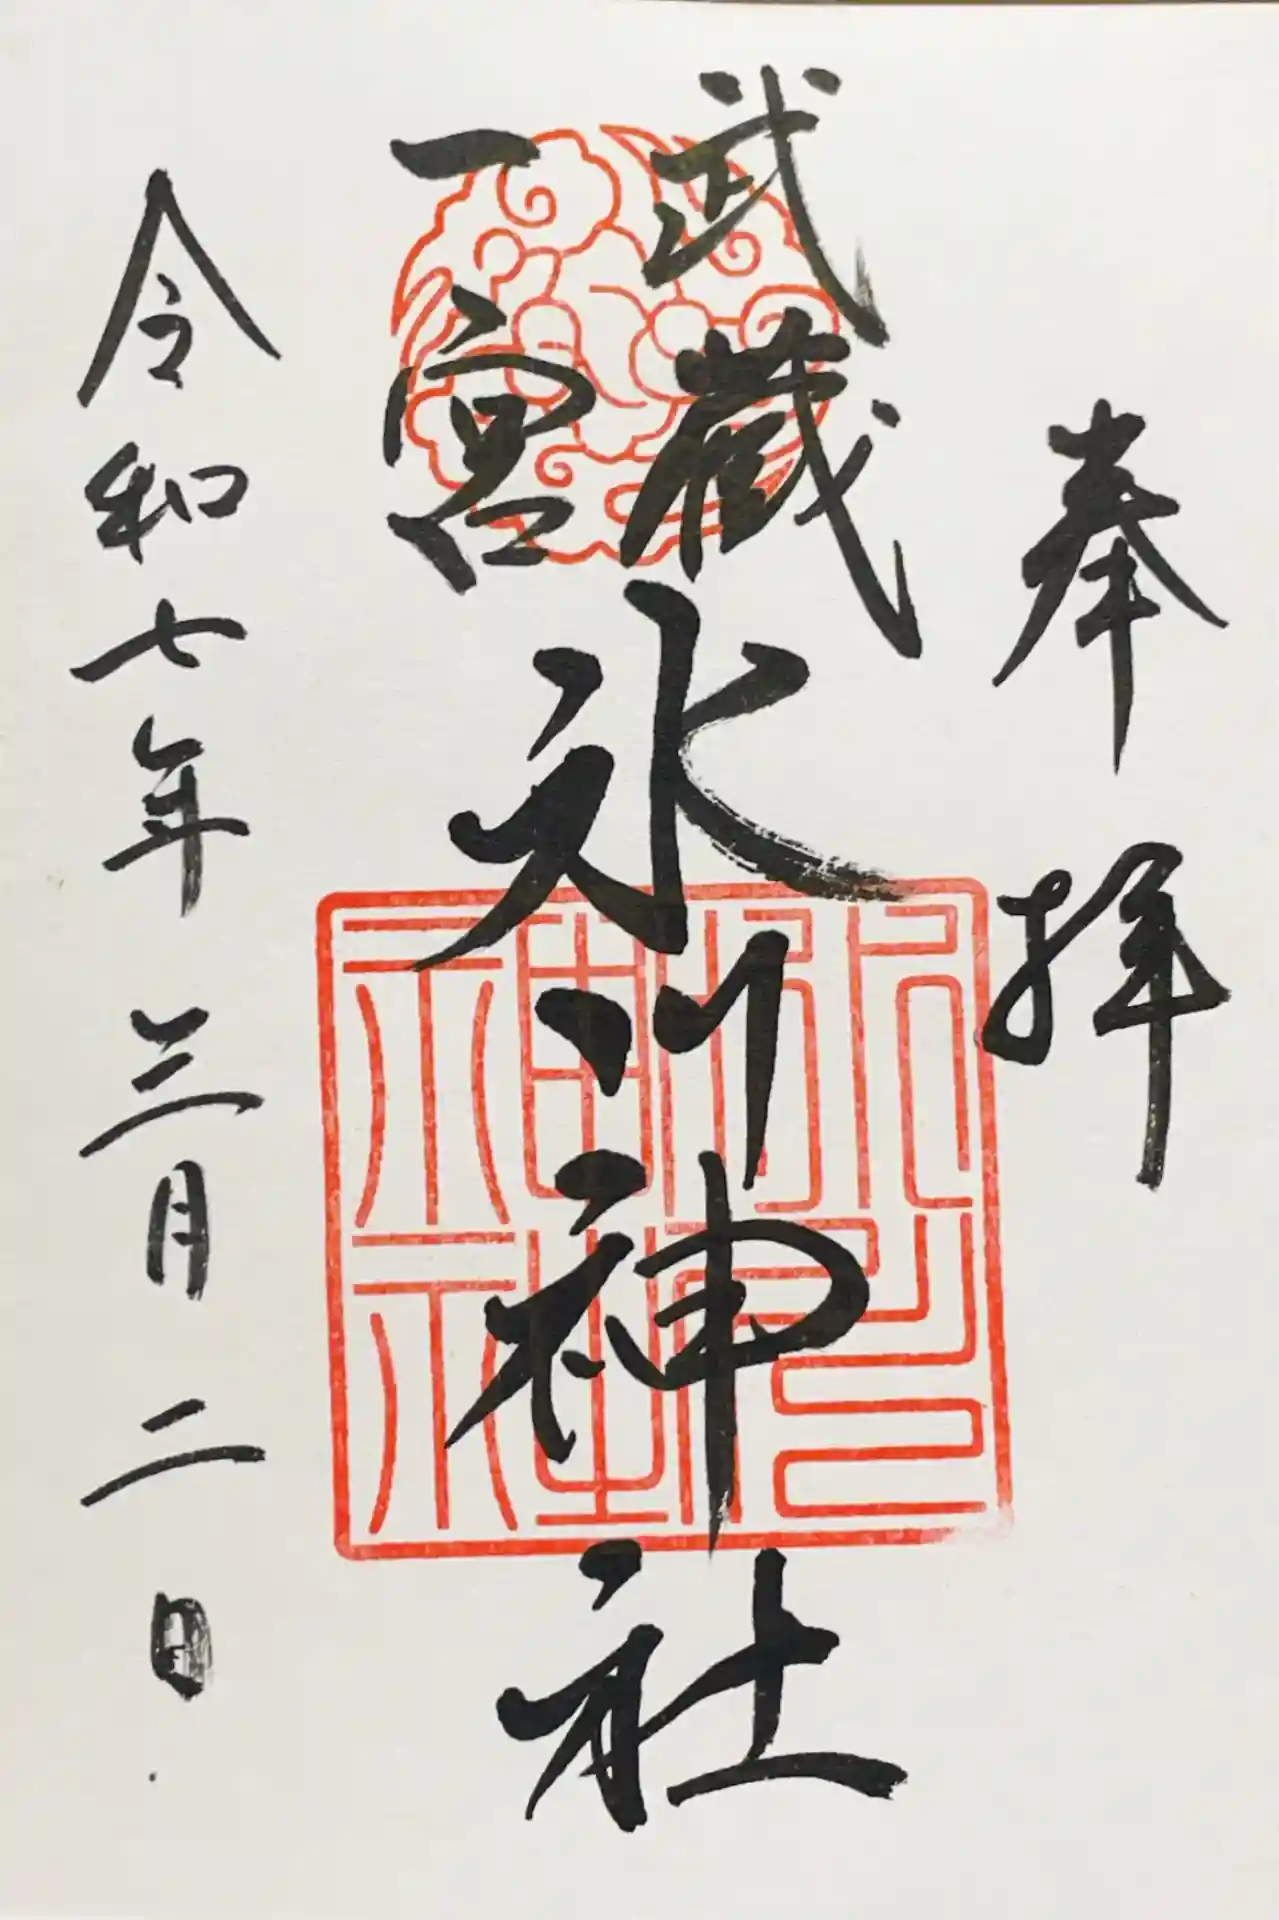 奉拝
武蔵
一宮
氷川神社
令和七年三月二日
氷川神社